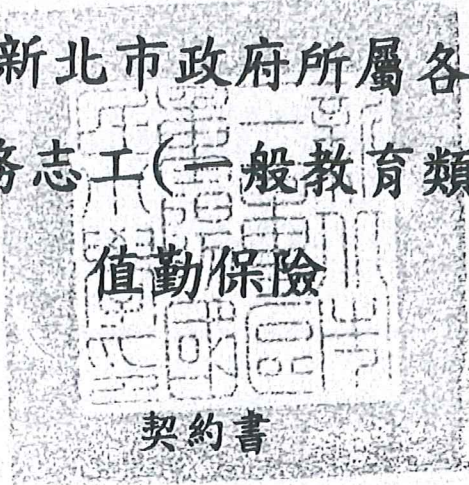 新北市政府所屬各
務志工(一般教育類
值勤保險
契約書